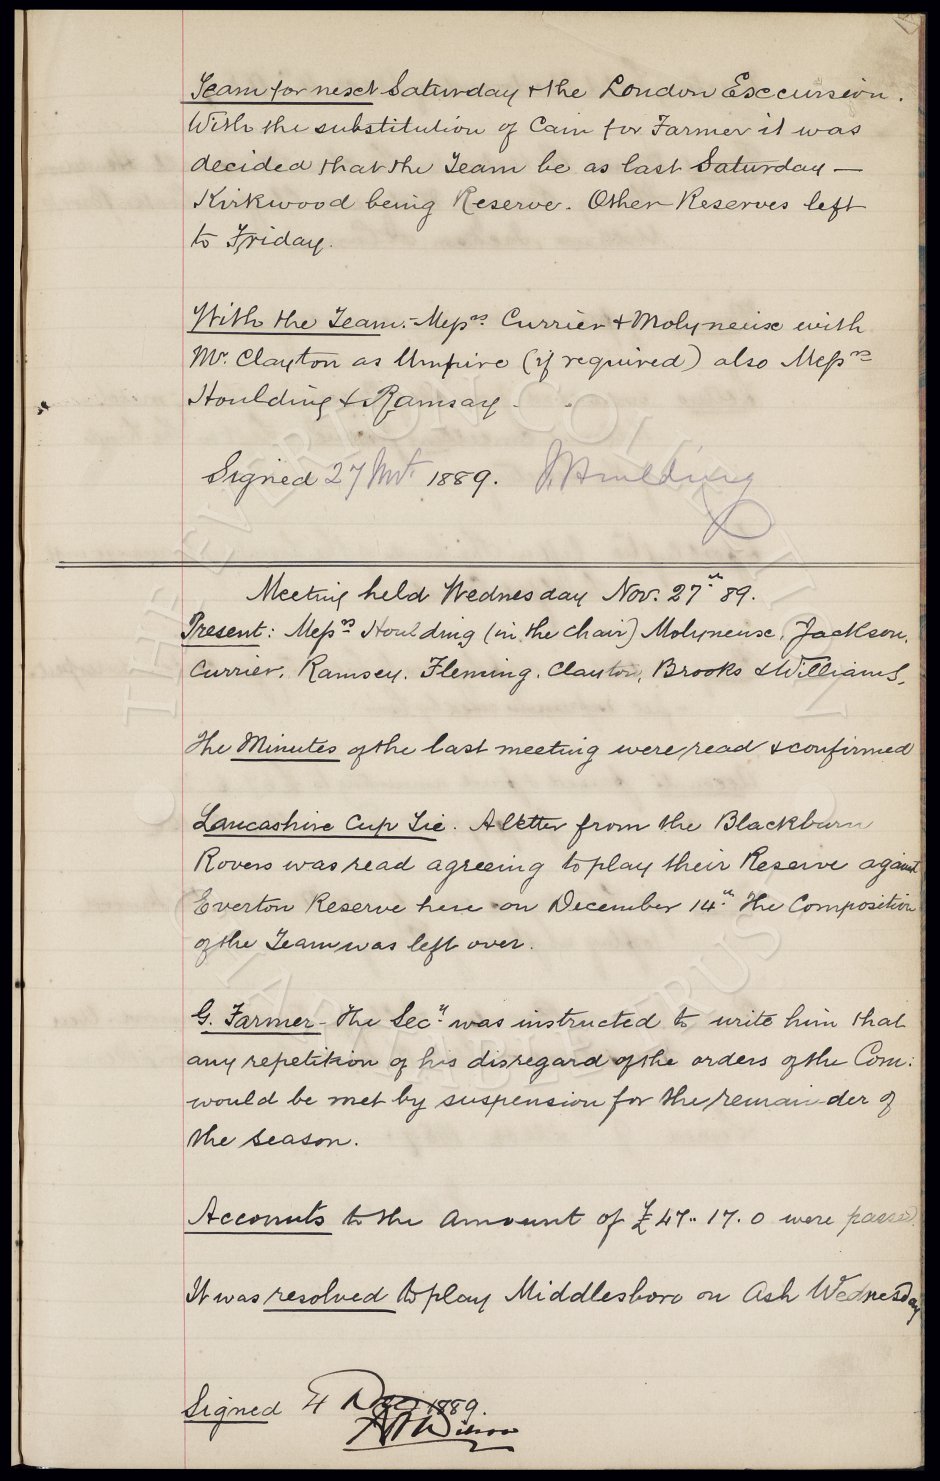 Team for next Saturday & the London Excursion.
With the substitution of Cain for Farmer it was
decided that the Team be as last Saturday —
Kirkwood being Reserve. Other Reserves left
to Friday.
With the Team:- Messrs Currier & Molyneux with
Mr. Clayton as Umpire (if required) also Messrs
Houlding & Ramsay.
Signed 27 Nov 1889. J Houlding
Meeting held Wednesday Nov. 27th 89.
Present: Messrs Houlding (in the chair) Molyneux, Jackson,
Currier, Ramsey, Fleming, Clayton, Brooks & Williams.
The Minutes of the last meeting were read & confirmed
Lancashire Cup Tie. A letter from the Blackburn
Rovers was read agreeing to play their Reserve against
Everton Reserve here on December 14th The Composition
of the Team was left over.
G. Farmer - The Secy was instructed to write him that
any repetition of his disregard of the orders of the Com:
would be met by suspension for the remainder of
the season.
Accounts to the amount of £47.. 17. 0 were passed
It was resolved to play Middlesboro on Ash Wednesday
Signed 4 Dec 1889.
THE EVERTON COLLECTION CHARITABLE TRUST